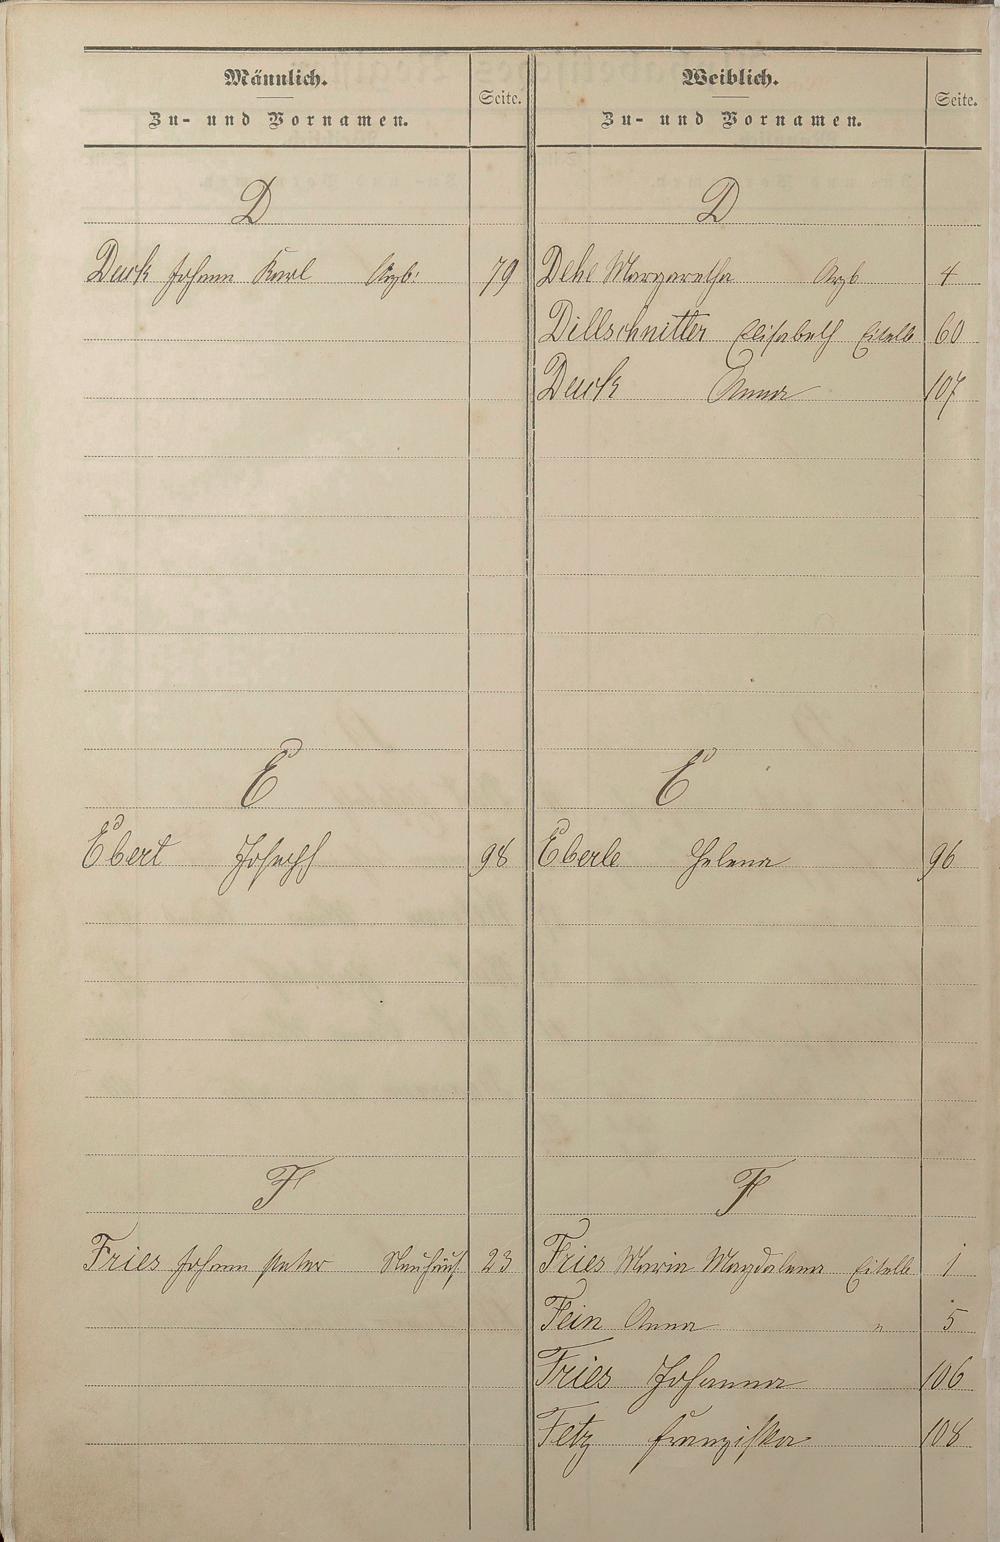 Männlich.
Zu- und Vornamen.
Seite.
D
Deuck Johann Karl Argb. 79
E
Ebert Joseph 98
F
Fries Johann Peter Neuhäus. 23
Weiblich.
Zu- und Vornamen.
Seite.
D
Dehe Margaretha Argb 4
Dillschnitter Elisabeth Eitelb 60
Deuck Anna 107
E
Eberle Helena 96
F
Fries Maria Magdalena Eitelb 1
Fein Anna " 5
Fries Johanna 106
Fetz Franziska 108